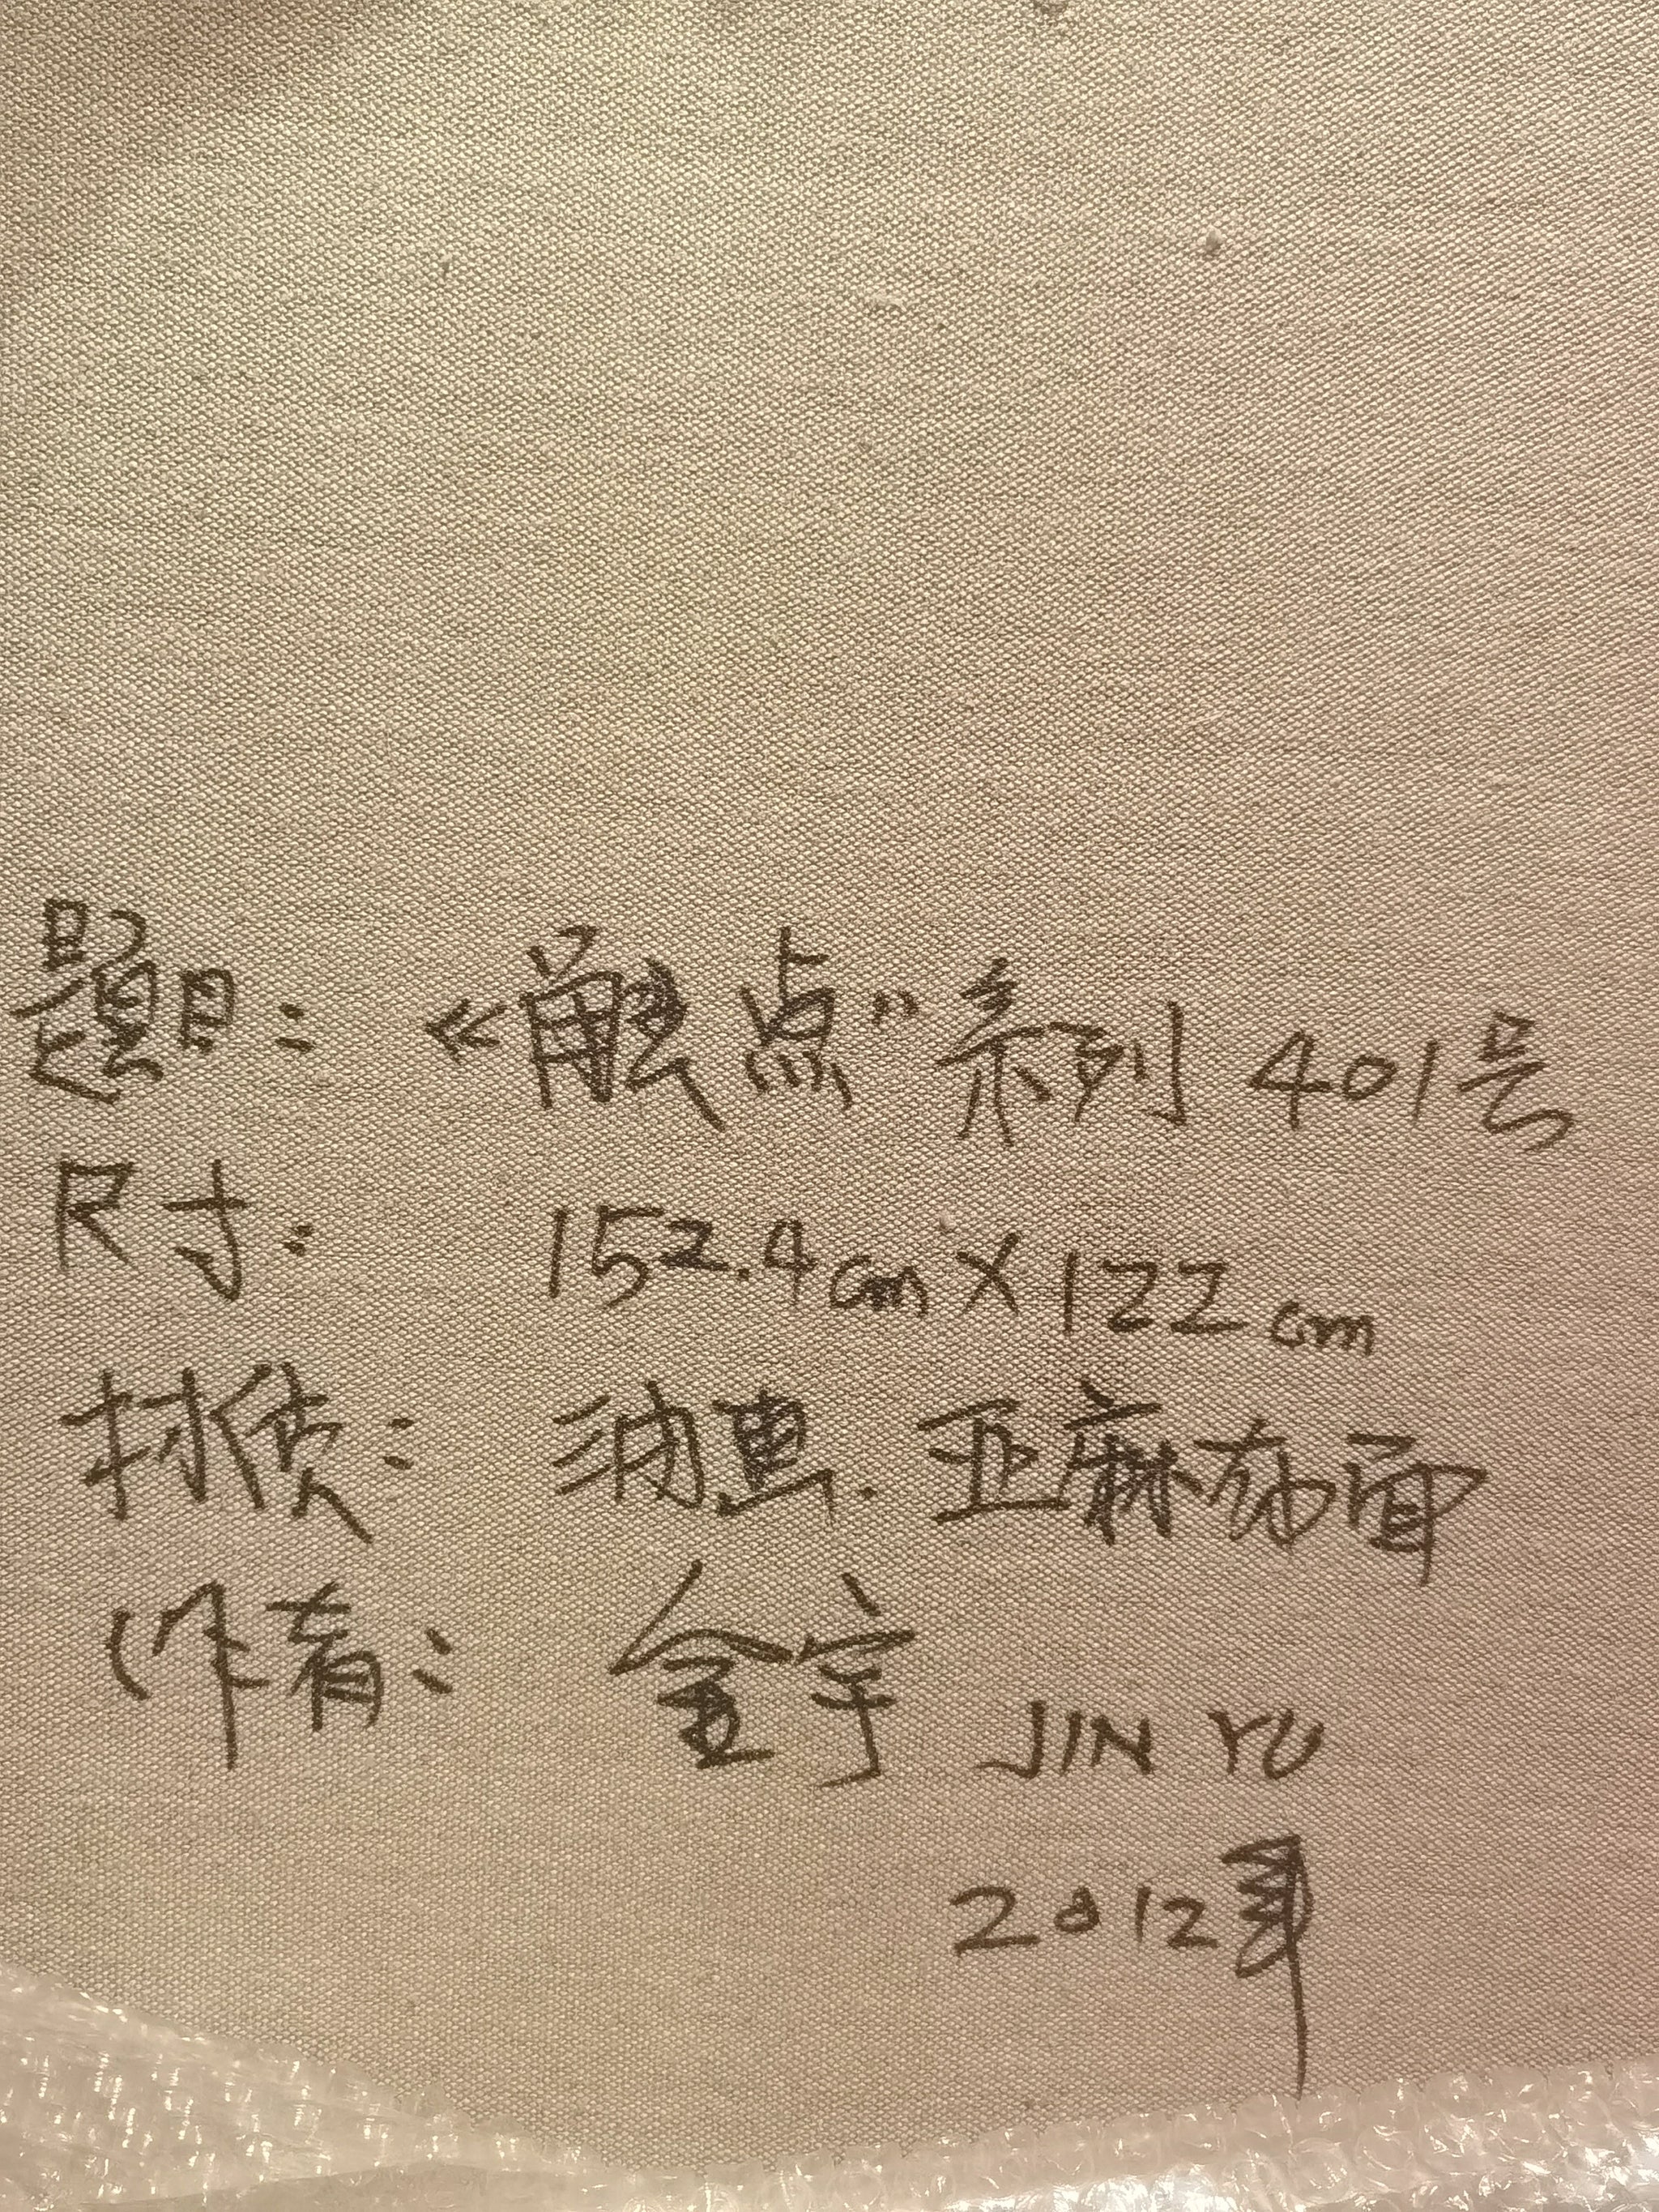 题目：《触点"系列401号
尺寸：152.4cm×122cm
材质：油画.亚麻布面
作者：金宇 JIN YU
2012年